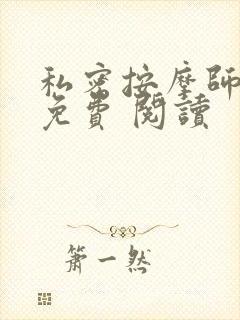 私密按摩師
免費 閱讀
簫一然